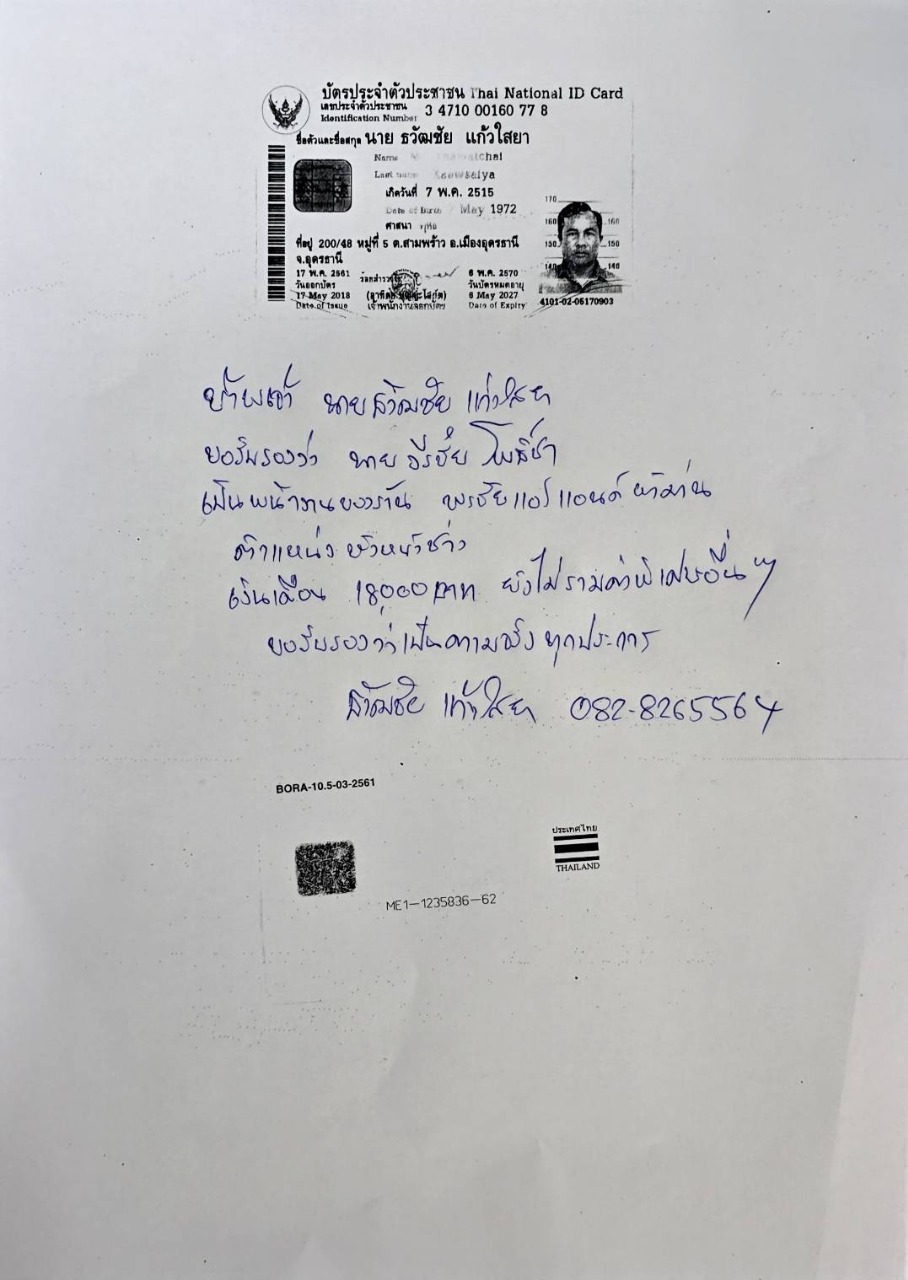 บัตรประจำตัวประชาชน Thai National ID Card
เลขประจำตัวประชาชน 3 4710 00160 77 8
Identification Number
ชื่อตัวและชื่อสกุล นาย ธวัฒชัย แก้วใสยา
Name
Last name
เกิดวันที่ 7 พ.ค. 2515
Date of Birth 7 May 1972
ศาสนา
ที่อยู่ 200/48 หมู่ที่ 5 ต.สามพร้าว อ.เมืองอุดรธานี
จ.อุดรธานี
17 พ.ค. 2561
วันออกบัตร
17 May 2018
Date of Issue
เจ้าพนักงานออกบัตร
6 พ.ค. 2570
วันบัตรหมดอายุ
6 May 2027
Date of Expiry
170
160 160
150 150
140 140
4101-02-05170903
ข้าพเจ้า นายธวัฒชัย แก้วใสยา
ขอรับรองว่า นาย ธีรชัย โพธิ์ชา
เป็นพนักงานของร้าน พรชัยแอร์แอนด์ผ้าม่าน
ตำแหน่ง หัวหน้าช่าง
เงินเดือน 18,000 บาท ยังไม่รวมค่าพิเศษอื่นๆ
ขอรับรองว่าเป็นความจริงทุกประการ
ธวัฒชัย แก้วใสยา 082-8265564
BORA-10.5-03-2561
ประเทศไทย
THAILAND
ME1-1235836-62